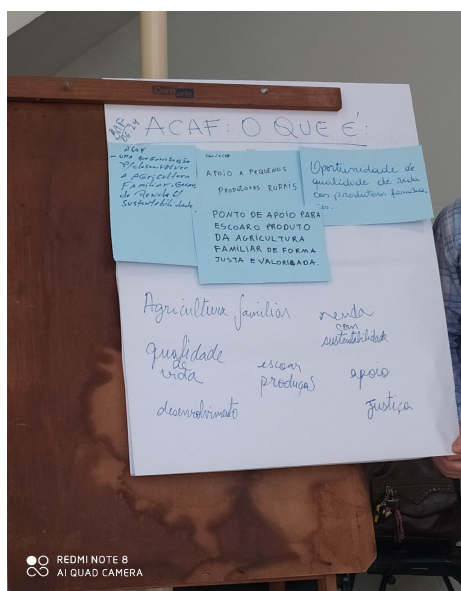 Cortiarte
ACAF: O QUE É:
ACAF
- UMA ORGANIZAÇÃO
P/ desenvolver
A AGRICULTURA
FAMILIAR, GERAN
do Renda C/
sustentabilidade
APOIO A PEQUENOS
PRODUTORES RURAIS
Oportunidade de
qualidade de vida
aos produtores familia
res.
PONTO DE APOIO PARA
ESCOAR O PRODUTO
DA AGRICULTURA
FAMILIAR DE FORMA
JUSTA E VALORIZADA.
Agricultura familiar
renda
com
sustentabilidade
qualidade
de
vida
escoar
produção
apoio
desenvolvimento
justiça
REDMI NOTE 8
AI QUAD CAMERA